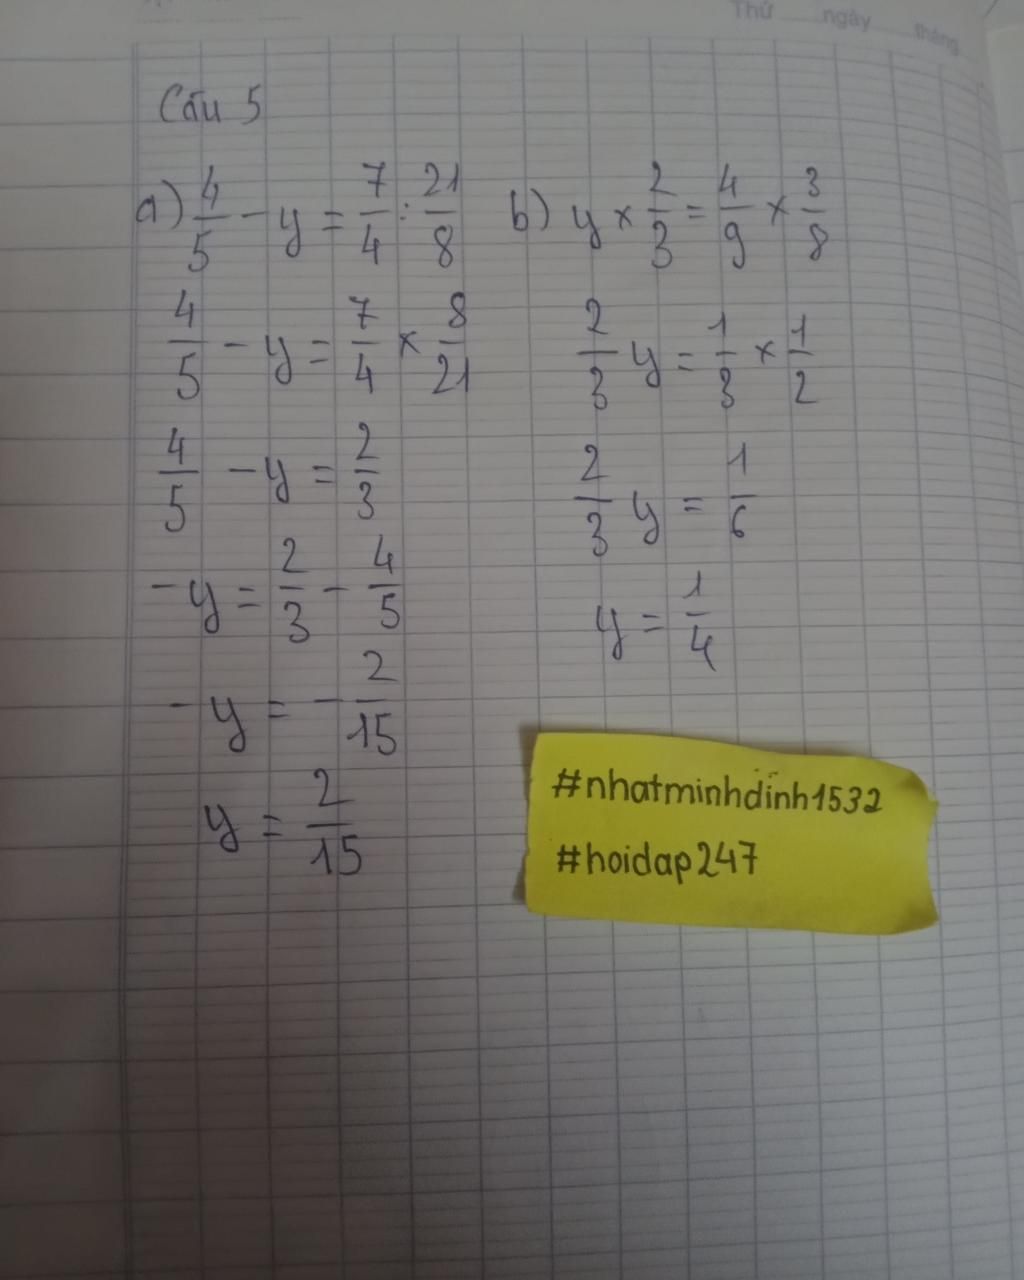 Thứ ngày tháng
Câu 5
a) 4/5 - y = 7/4 : 21/8
4/5 - y = 7/4 × 8/21
4/5 - y = 2/3
-y = 2/3 - 4/5
-y = -2/15
y = 2/15
b) y × 2/3 = 4/9 × 3/8
2/3 y = 1/3 × 1/2
2/3 y = 1/6
y = 1/4
#nhatminhdinh1532
#hoidap247